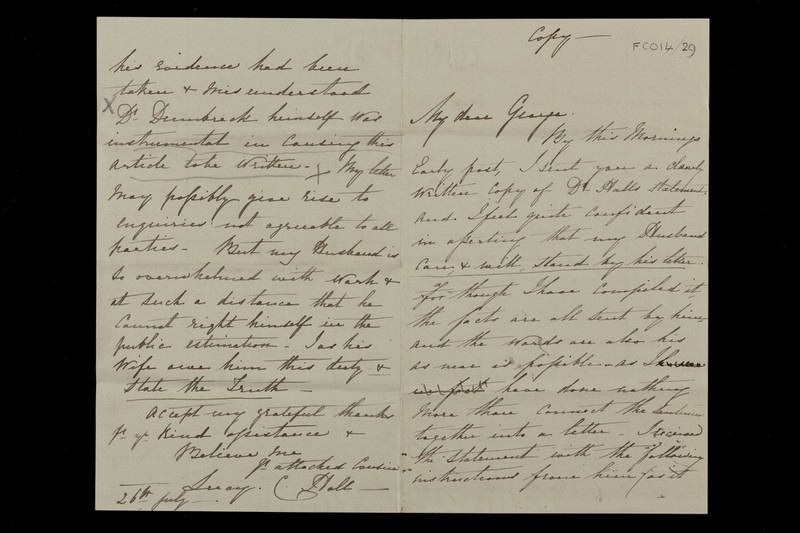 Copy —
FCO14/29
My dear George.
By this Mornings
Early post, I sent you a clearly
written Copy of Dr. Halls Statement.
and I feel quite Confident
in aserting that my Husband
Can, & will, stand by his letter.
For though I have Compiled it,
the facts are all sent by him,
and the words are also his
as near as possible - as I
have done nothing
More than Connect the Sentences
together into a letter. I received
the Statement with the following
instructions from him (as it
his Evidence had been
taken & Misunderstood
X Dr. Dumbreck himself was
instrumental in Causing this
article to be written - X My letter
May possibly give rise to
enquiries not agreeable to all
parties - But my Husband is
so overwhelmed with Work &
at such a distance that he
Cannot right himself in the
public estimation - I as his
Wife owe him this duty &
State the Truth —
Accept my grateful thanks
fr. yr. Kind assistance &
Believe Me
Yr. attached Cousin
C. Hall —
26th July